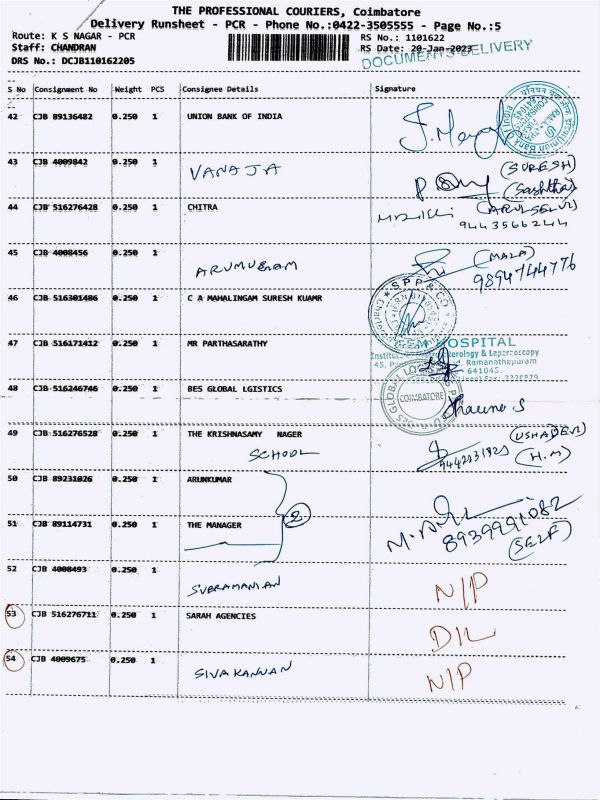 THE PROFESSIONAL COURIERS, Coimbatore
Delivery Runsheet - PCR - Phone No.:0422-3505555 - Page No.:5
Route: K S NAGAR - PCR RS No.: 1101622
Staff: CHANDRAN RS Date: 20-Jan-2023
DRS No.: DCJB110162205 DOCUMENTS DELIVERY
S No Consignment No Weight PCS Consignee Details Signature
42 CJB 89136482 0.250 1 UNION BANK OF INDIA
43 CJB 4009842 0.250 1 VANAJA (SURESH)
44 CJB 516276428 0.250 1 CHITRA (ARULSELVI)
9443566244
45 CJB 4008456 0.250 1 ARUMUGAM (MALA)
9894744776
46 CJB 516301486 0.250 1 C A MAHALINGAM SURESH KUAMR
SPP & CO
47 CJB 516171412 0.250 1 MR PARTHASARATHY
GEM HOSPITAL
Ramanathapuram
641045.
48 CJB 516246746 0.250 1 BES GLOBAL LGISTICS
COIMBATORE
49 CJB 516276528 0.250 1 THE KRISHNASAMY NAGER (USHADEVI)
SCHOOL (H.M)
50 CJB 89231026 0.250 1 ARUNKUMAR
2 8939991082
51 CJB 89114731 0.250 1 THE MANAGER (SELF)
52 CJB 4008493 0.250 1 SUBRAMANIAN N/P
53 CJB 516276711 0.250 1 SARAH AGENCIES D/L
54 CJB 4009675 0.250 1 SIVAKANNAN N/P